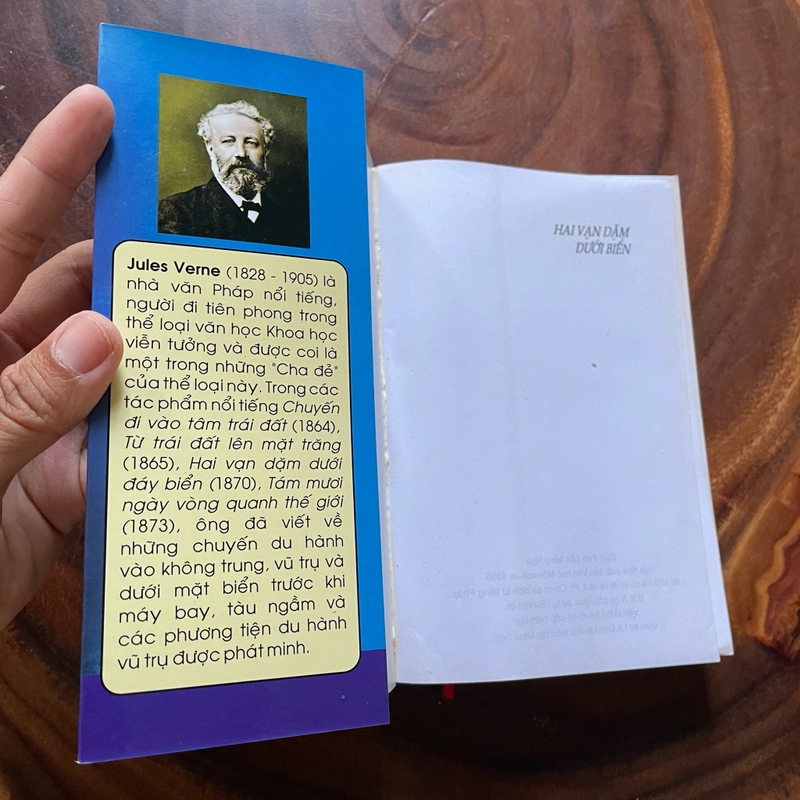 Jules Verne (1828 - 1905) là
nhà văn Pháp nổi tiếng,
người đi tiên phong trong
thể loại văn học Khoa học
viễn tưởng và được coi là
một trong những "Cha đẻ"
của thể loại này. Trong các
tác phẩm nổi tiếng Chuyến
đi vào tâm trái đất (1864),
Từ trái đất lên mặt trăng
(1865), Hai vạn dặm dưới
đáy biển (1870), Tám mươi
ngày vòng quanh thế giới
(1873), ông đã viết về
những chuyến du hành
vào không trung, vũ trụ và
dưới mặt biển trước khi
máy bay, tàu ngầm và
các phương tiện du hành
vũ trụ được phát minh.
HAI VẠN DẶM
DƯỚI BIỂN